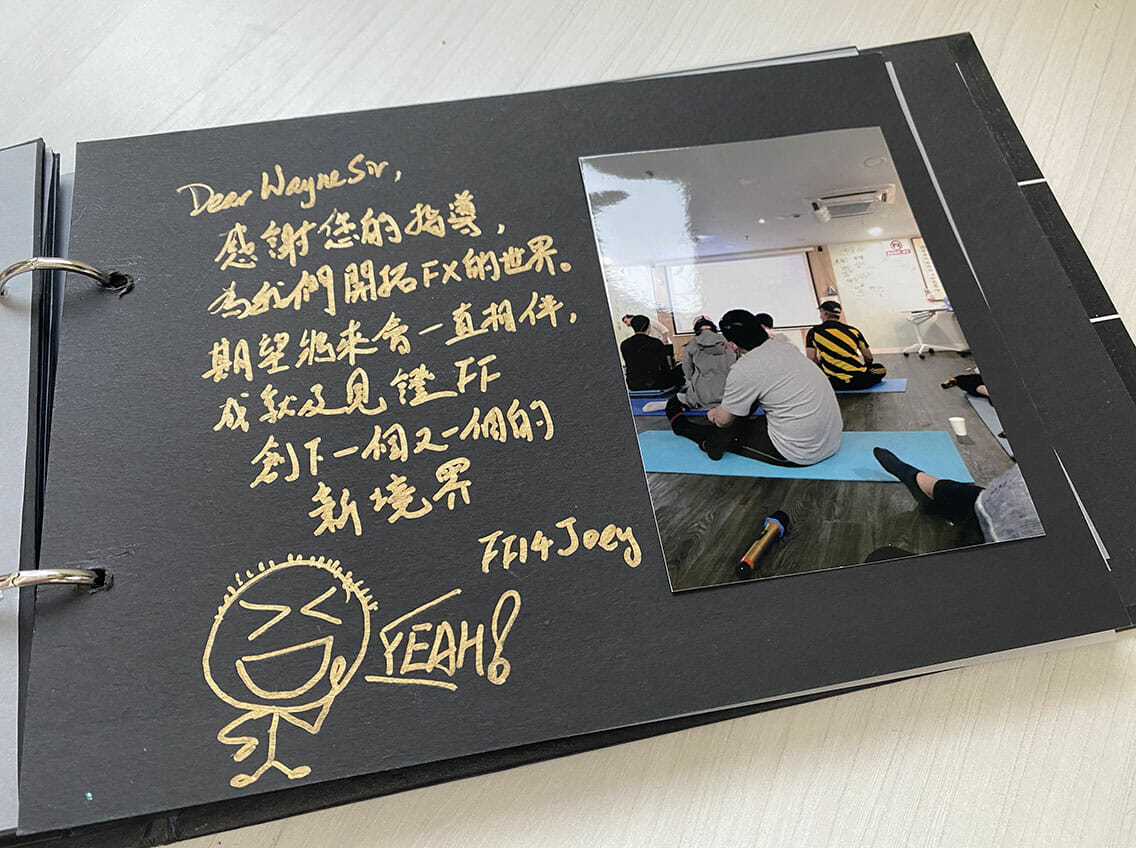 Dear Wayne Sir,
感謝您的指導,
為我們開拓FX的世界。
期望將來會一直相伴,
成就及見證FF
創下一個又一個的
新境界
FF14 Joey
YEAH!